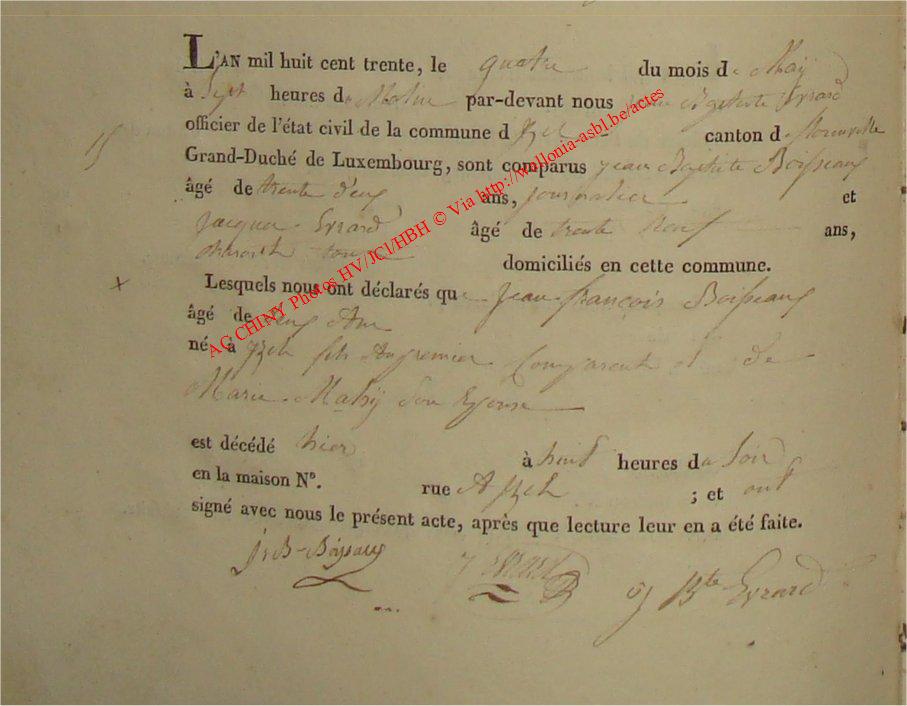 L'AN mil huit cent trente, le quatre du mois de Maÿ
à Sept heures du Matin par-devant nous Jean Baptiste Evrard
officier de l'état civil de la commune d Izel canton de florenville
15
Grand-Duché de Luxembourg, sont comparus jean Baptiste Boisseaux
âgé de trente deux ans, journalier et
jacques Evrard âgé de trente Neuf ans,
domiciliés en cette commune.
x
Lesquels nous ont déclarés que Jean françois Boisseaux
âgé de deux Ans
né à Izel fils du premier Comparent et de
Marie Mahÿ Son Epouse
est décédé hier à huit heures du Soir
en la maison N°. rue A Izel ; et ont
signé avec nous le présent acte, après que lecture leur en a été faite.
J B Boissaux J Evrard J Bte Evrard
AG CHINY Photos HV/JCl/HBH © Via http://wallonia-asbl.be/actes